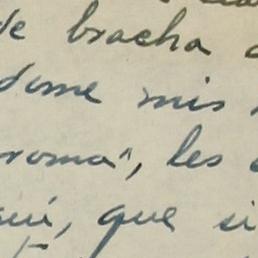 de bracha
dome mis
roma", les
que si